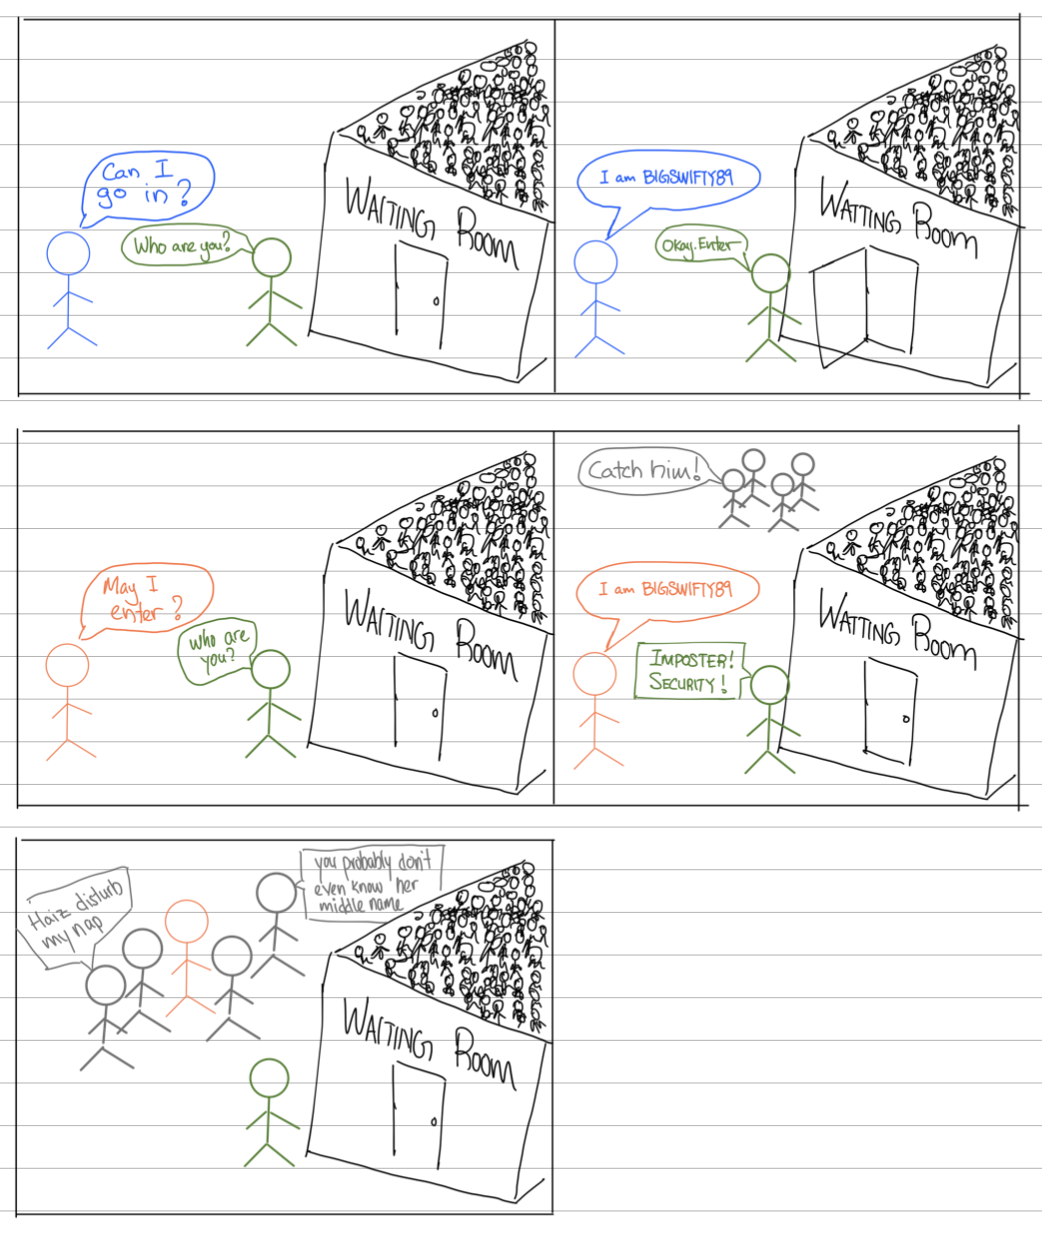 Can I
go in?
Who are you?
WAITING ROOM
I am BIGSWIFTY89
Okay. Enter
WAITING ROOM
May I
enter?
Who are
you?
WAITING ROOM
Catch him!
I am BIGSWIFTY89
IMPOSTER!
SECURITY!
WAITING ROOM
Haiz disturb
my nap
you probably don't
even know her
middle name
WAITING ROOM